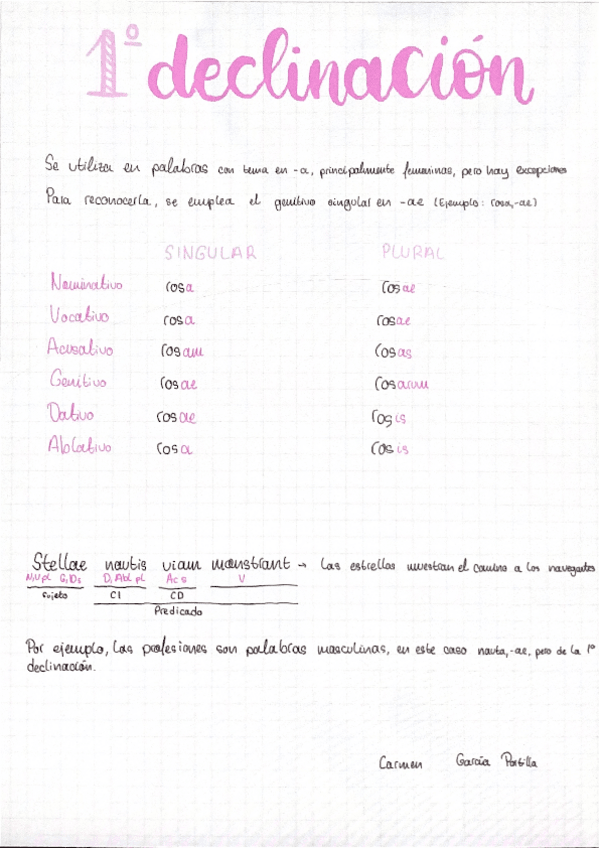 1º declinación
Se utiliza en palabras con tema en -a, principalmente femeninas, pero hay excepciones
Para reconocerla, se emplea el genitivo singular en -ae (Ejemplo: rosa,-ae)
SINGULAR PLURAL
Nominativo rosa rosae
Vocativo rosa rosae
Acusativo rosam rosas
Genitivo rosae rosarum
Dativo rosae rosis
Ablativo rosa rosis
Stellae nautis viam monstrant → Las estrellas muestran el camino a los navegantes
N,V pl G,Ds D,Abl pl Ac s V
Sujeto CI CD
Predicado
Por ejemplo, las profesiones son palabras masculinas, en este caso nauta,-ae, pero de la 1º
declinación.
Carmen García Portilla